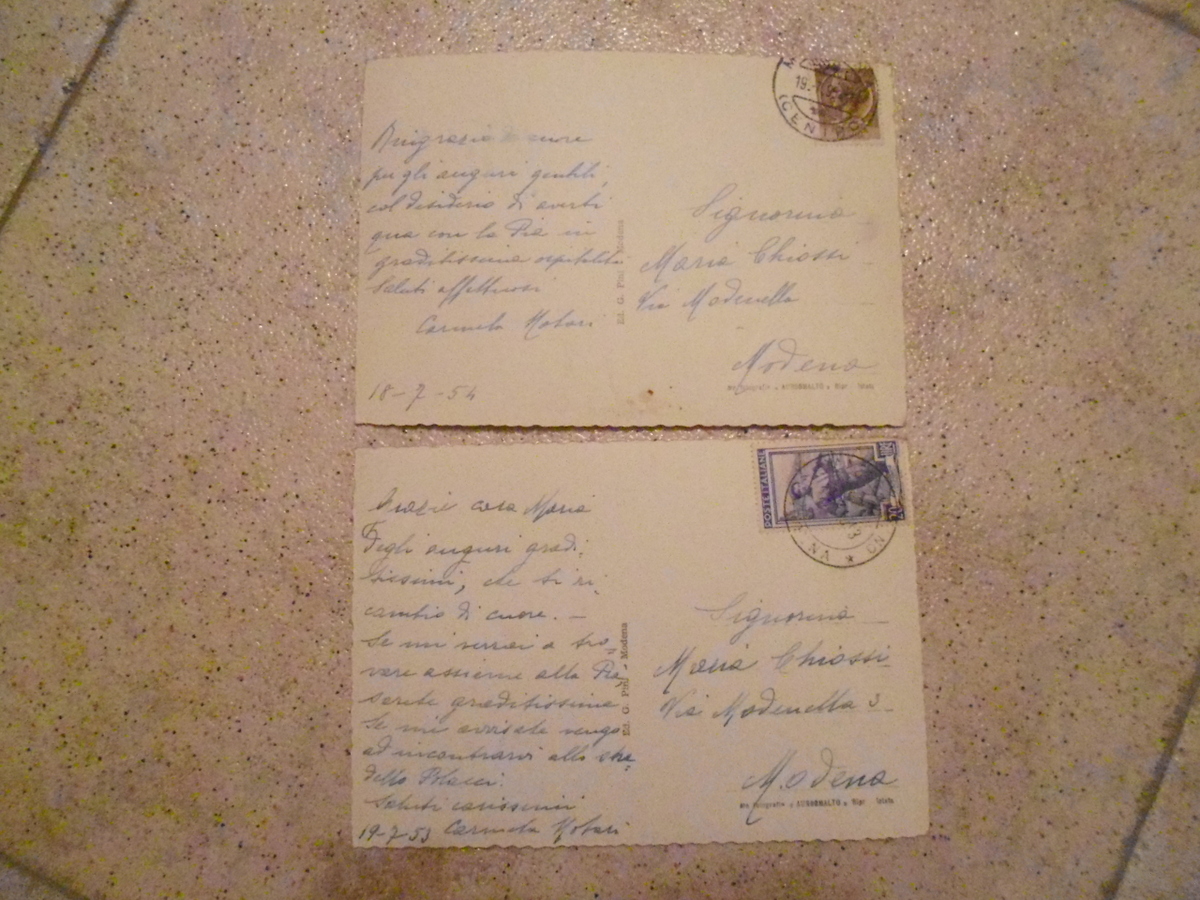 Ringrazio di cuore
per gli auguri gentili,
col desiderio di averti
qua con la Pia in
graditissima ospitalità
Saluti affettuosi
Carmela Motari
18-7-54
Ed. G. Pini - Modena
19.
(CENTRO)
Signorina
Maria Chiossi
Via Modenella
Modena
Grazie cara Maria
degli auguri gradi-
tissimi, che ti ri-
cambio di cuore. -
Se mi verrai a tro-
vare assieme alla Pia
sarete graditissime
Se mi avvisate vengo
ad incontrarvi allo stra-
dello
Saluti carissimi
19-7-53 Carmela Motari
Ed. G. Pini - Modena
POSTE ITALIANE
Signorina
Maria Chiossi
Via Modenella 3
Modena